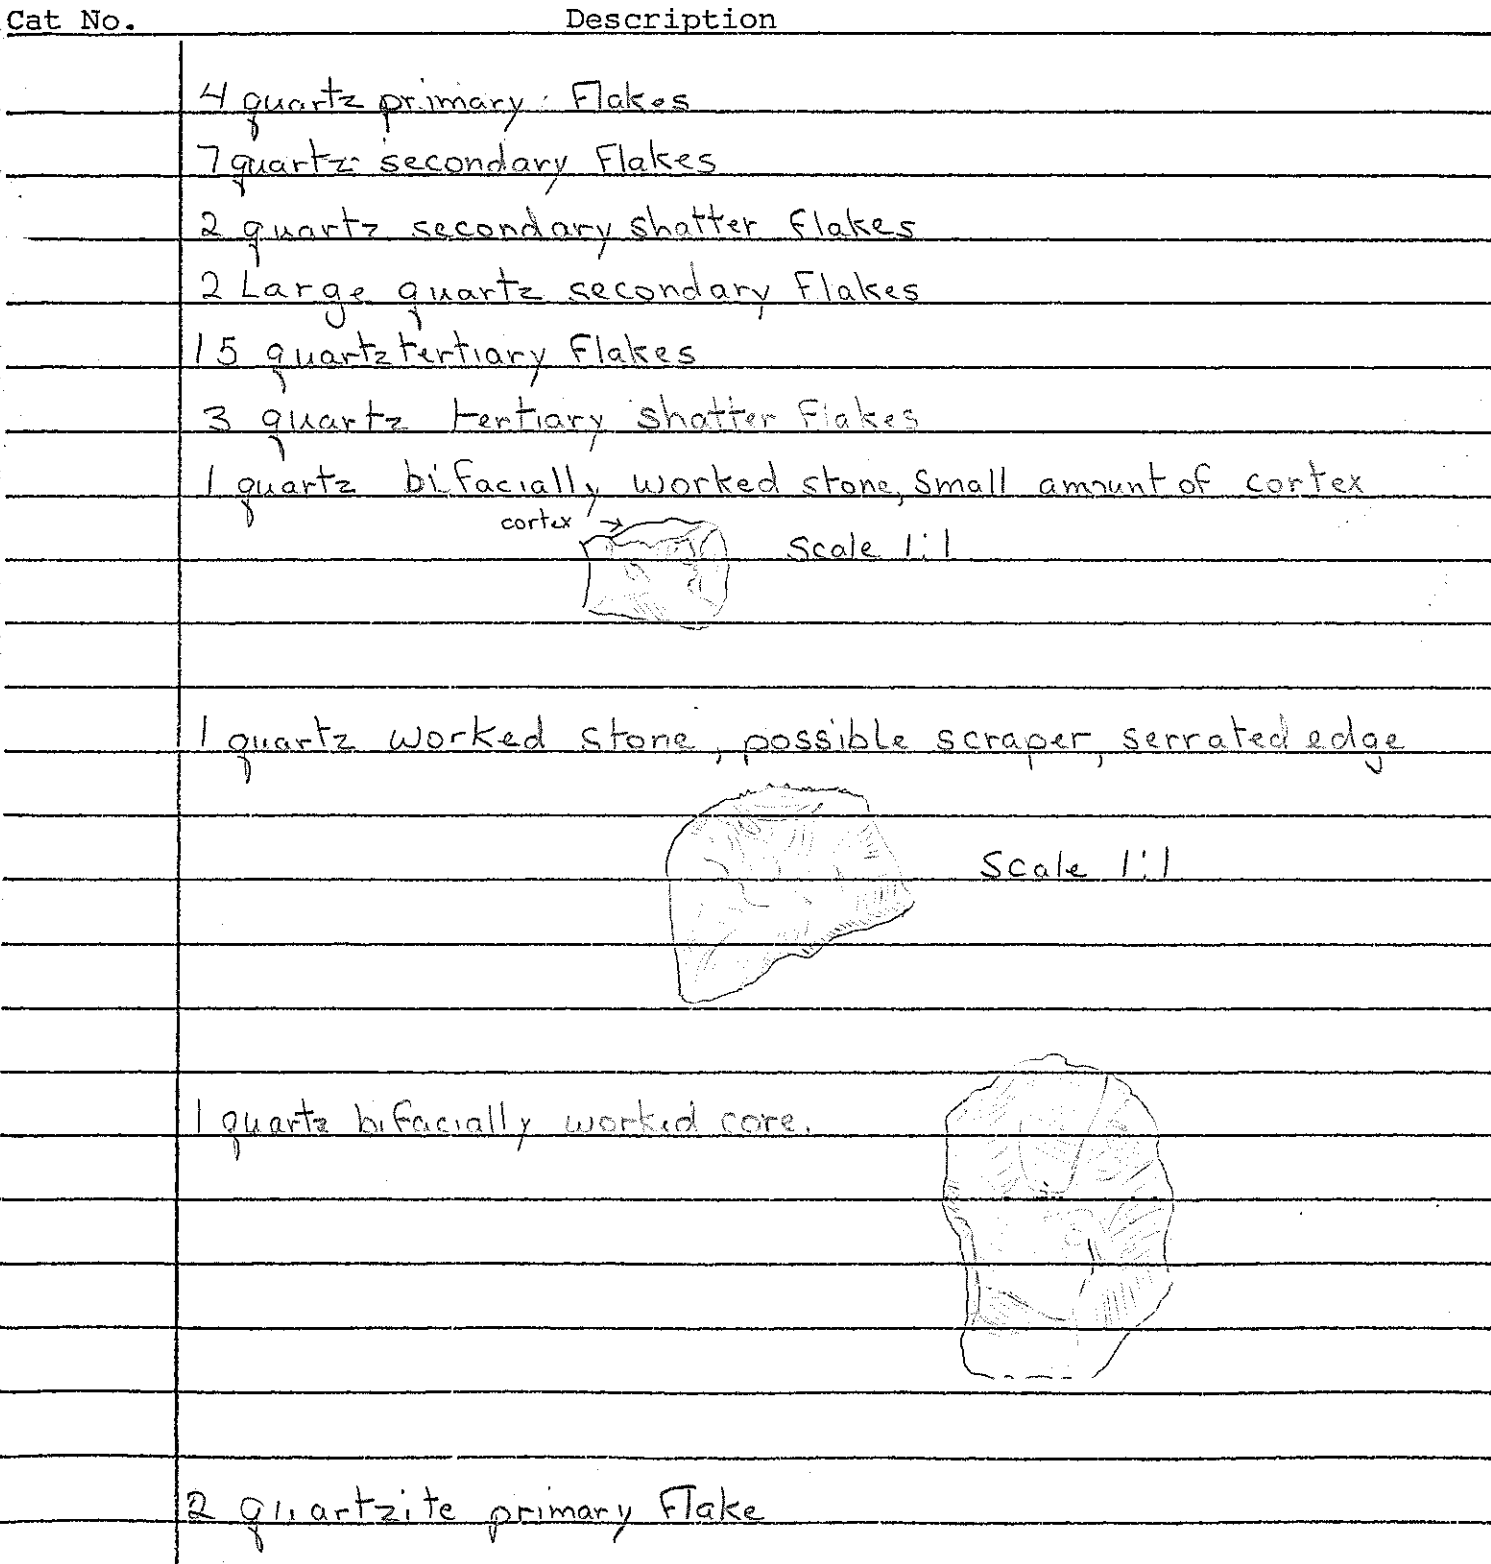 Cat No. Description
4 quartz primary Flakes
7 quartz secondary Flakes
2 quartz secondary shatter flakes
2 Large quartz secondary Flakes
15 quartz tertiary Flakes
3 quartz tertiary shatter Flakes
1 quartz bifacially worked stone, Small amount of cortex
cortex
Scale 1:1
1 quartz worked stone, possible scraper, serrated edge
Scale 1:1
1 quartz bifacially worked core.
2 quartzite primary Flake